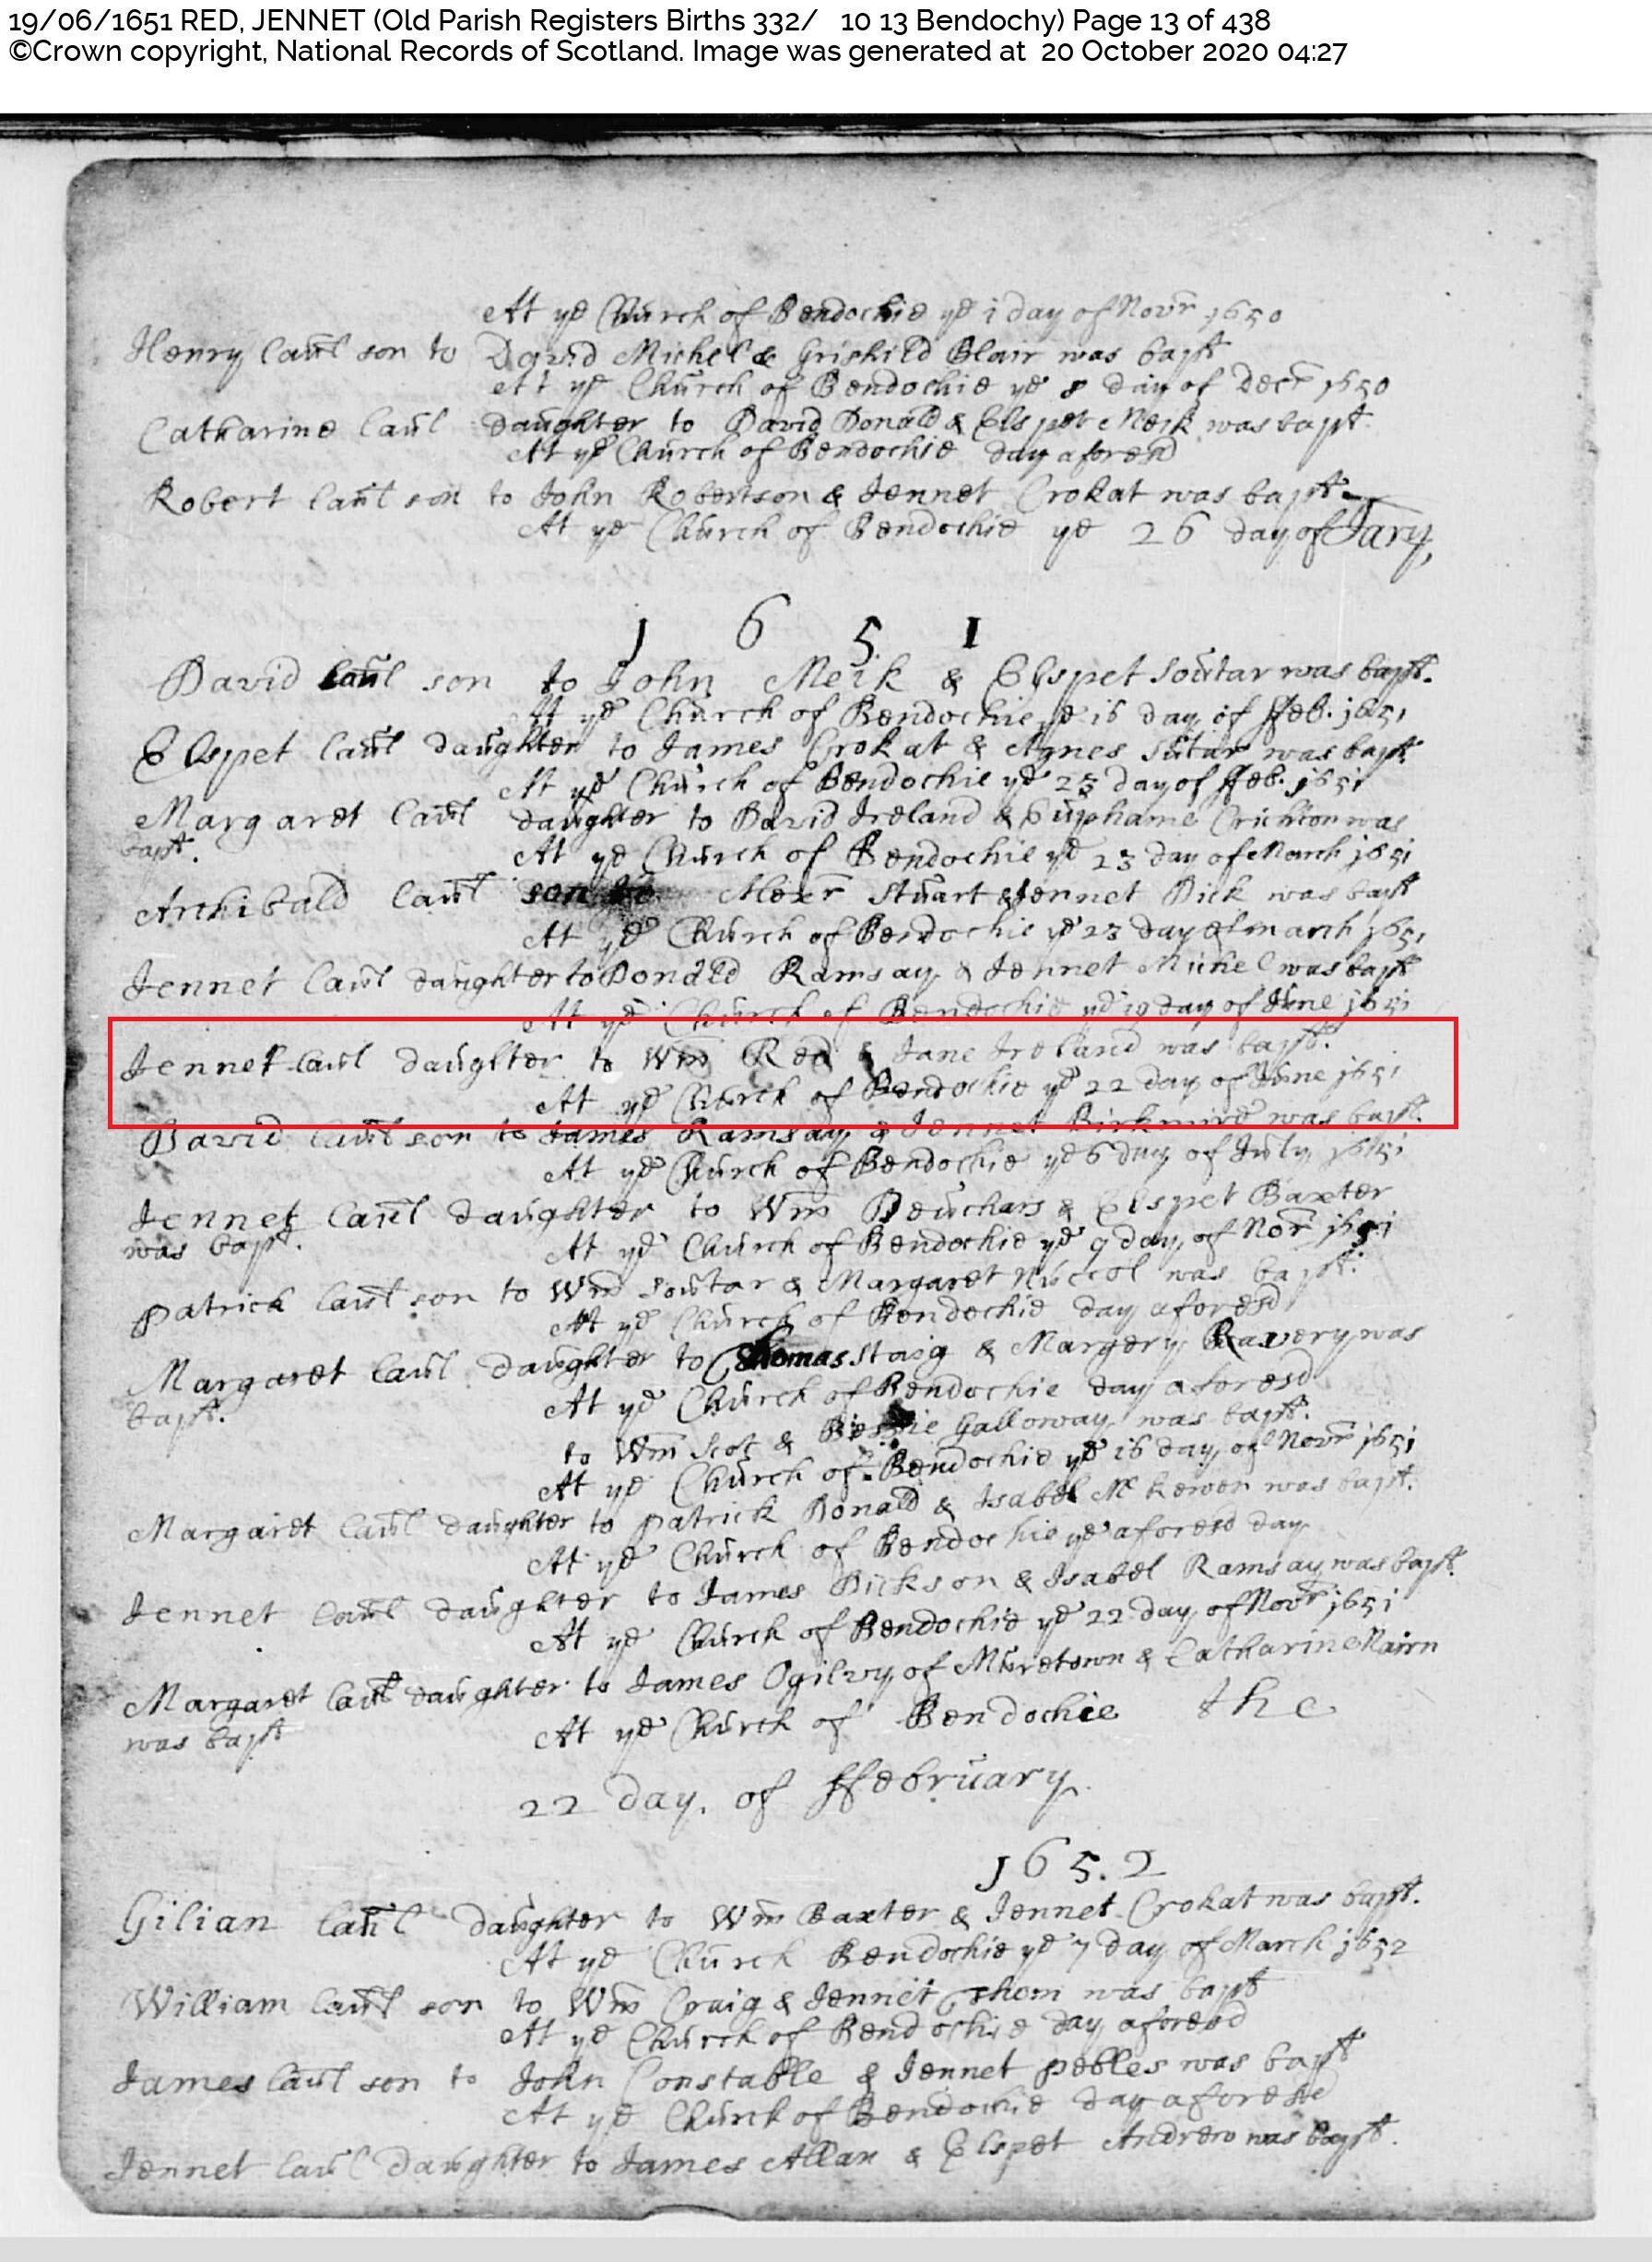 19/06/1651 RED, JENNET (Old Parish Registers Births 332/ 10 13 Bendochy) Page 13 of 438
©Crown copyright, National Records of Scotland. Image was generated at 20 October 2020 04:27
At ye Church of Bendochie ye 1 day of Novr 1650
Henry laul son to David Michel & Grishild Blair was bapt
At ye Church of Bendochie ye 8 day of Decr 1650
Catharine laul daughter to David Donald & Elspet Meik was bapt.
At ye Church of Bendochie day aforesd
Robert laul son to John Robertson & Jennet Crokat was bapt
At ye Church of Bendochie ye 26 day of Jary,
1651
David laul son to John Meik & Elspet Soutar was bapt.
At ye Church of Bendochie ye 16 day of ffeb. 1651
Elspet laul daughter to James Crokat & Agnes Sutar was bapt
At ye Church of Bendochie ye 23 day of ffeb. 1651
Margaret laul daughter to David Ireland & Euphame Crichton was
bapt.
At ye Church of Bendochie ye 23 day of March 1651
Archibald laul son to Stuart & Jennet Dick was bapt
At ye Church of Bendochie ye 23 day of march 1651
Jennet laul daughter to Donald Ramsay & Jennet Michel was bapt
At ye Church of Bendochie ye 19 day of June 1651
Jennet laul daughter to Wm Red & Jane Ireland was bapt.
At ye Church of Bendochie ye 22 day of June 1651
David laul son to James Ramsay & Jennet Birkmire was bapt.
At ye Church of Bendochie ye 6 day of July 1651
Jennet laul daughter to Wm Deuchars & Elspet Baxter
was bapt.
At ye Church of Bendochie ye 9 day of Nor 1651
Patrick laul son to Wm Soutar & Margaret Niccol was bapt.
At ye Church of Bendochie day aforesd
Margaret laul daughter to Thomas Staig & Margery Ravery was
bapt.
At ye Church of Bendochie day aforesd
to Wm Scot & Bessie Galloway was bapt.
At ye Church of Bendochie ye 16 day of Novr 1651
Margaret laul daughter to Patrick Donald & Isabel Mc Kewen was bapt.
At ye Church of Bendochie ye aforesd day
Jennet laul daughter to James Dickson & Isabel Ramsay was bapt.
At ye Church of Bendochie ye 22 day of Novr 1651
Margaret laul daughter to James Ogilvy of Muretown & Catharine Nairn
was bapt
At ye Church of Bendochie the
22 day. of ffebruary
165.2
Gilian laul daughter to Wm Baxter & Jennet Crokat was bapt.
At ye Church Bendochie ye 7 day of March 1652
William laul son to Wm Craig & Jennet Thom was bapt
At ye Church of Bendochie day aforesd
James laul son to John Constable & Jennet Pebles was bapt
At ye Church of Bendochie day aforesd
Jennet laul daughter to James Allan & Elspet Andrew was bapt.